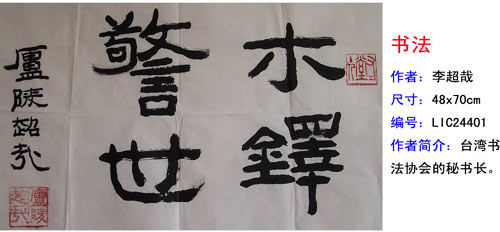 木鐸
警世
盧陵超哉
书法
作者：李超哉
尺寸：48x70cm
编号：LIC24401
作者简介：台湾书
法协会的秘书长。